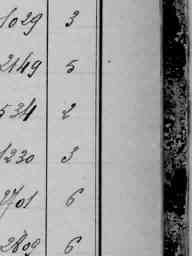 1029 3
2149 5
534 2
1230 3
2701 6
6